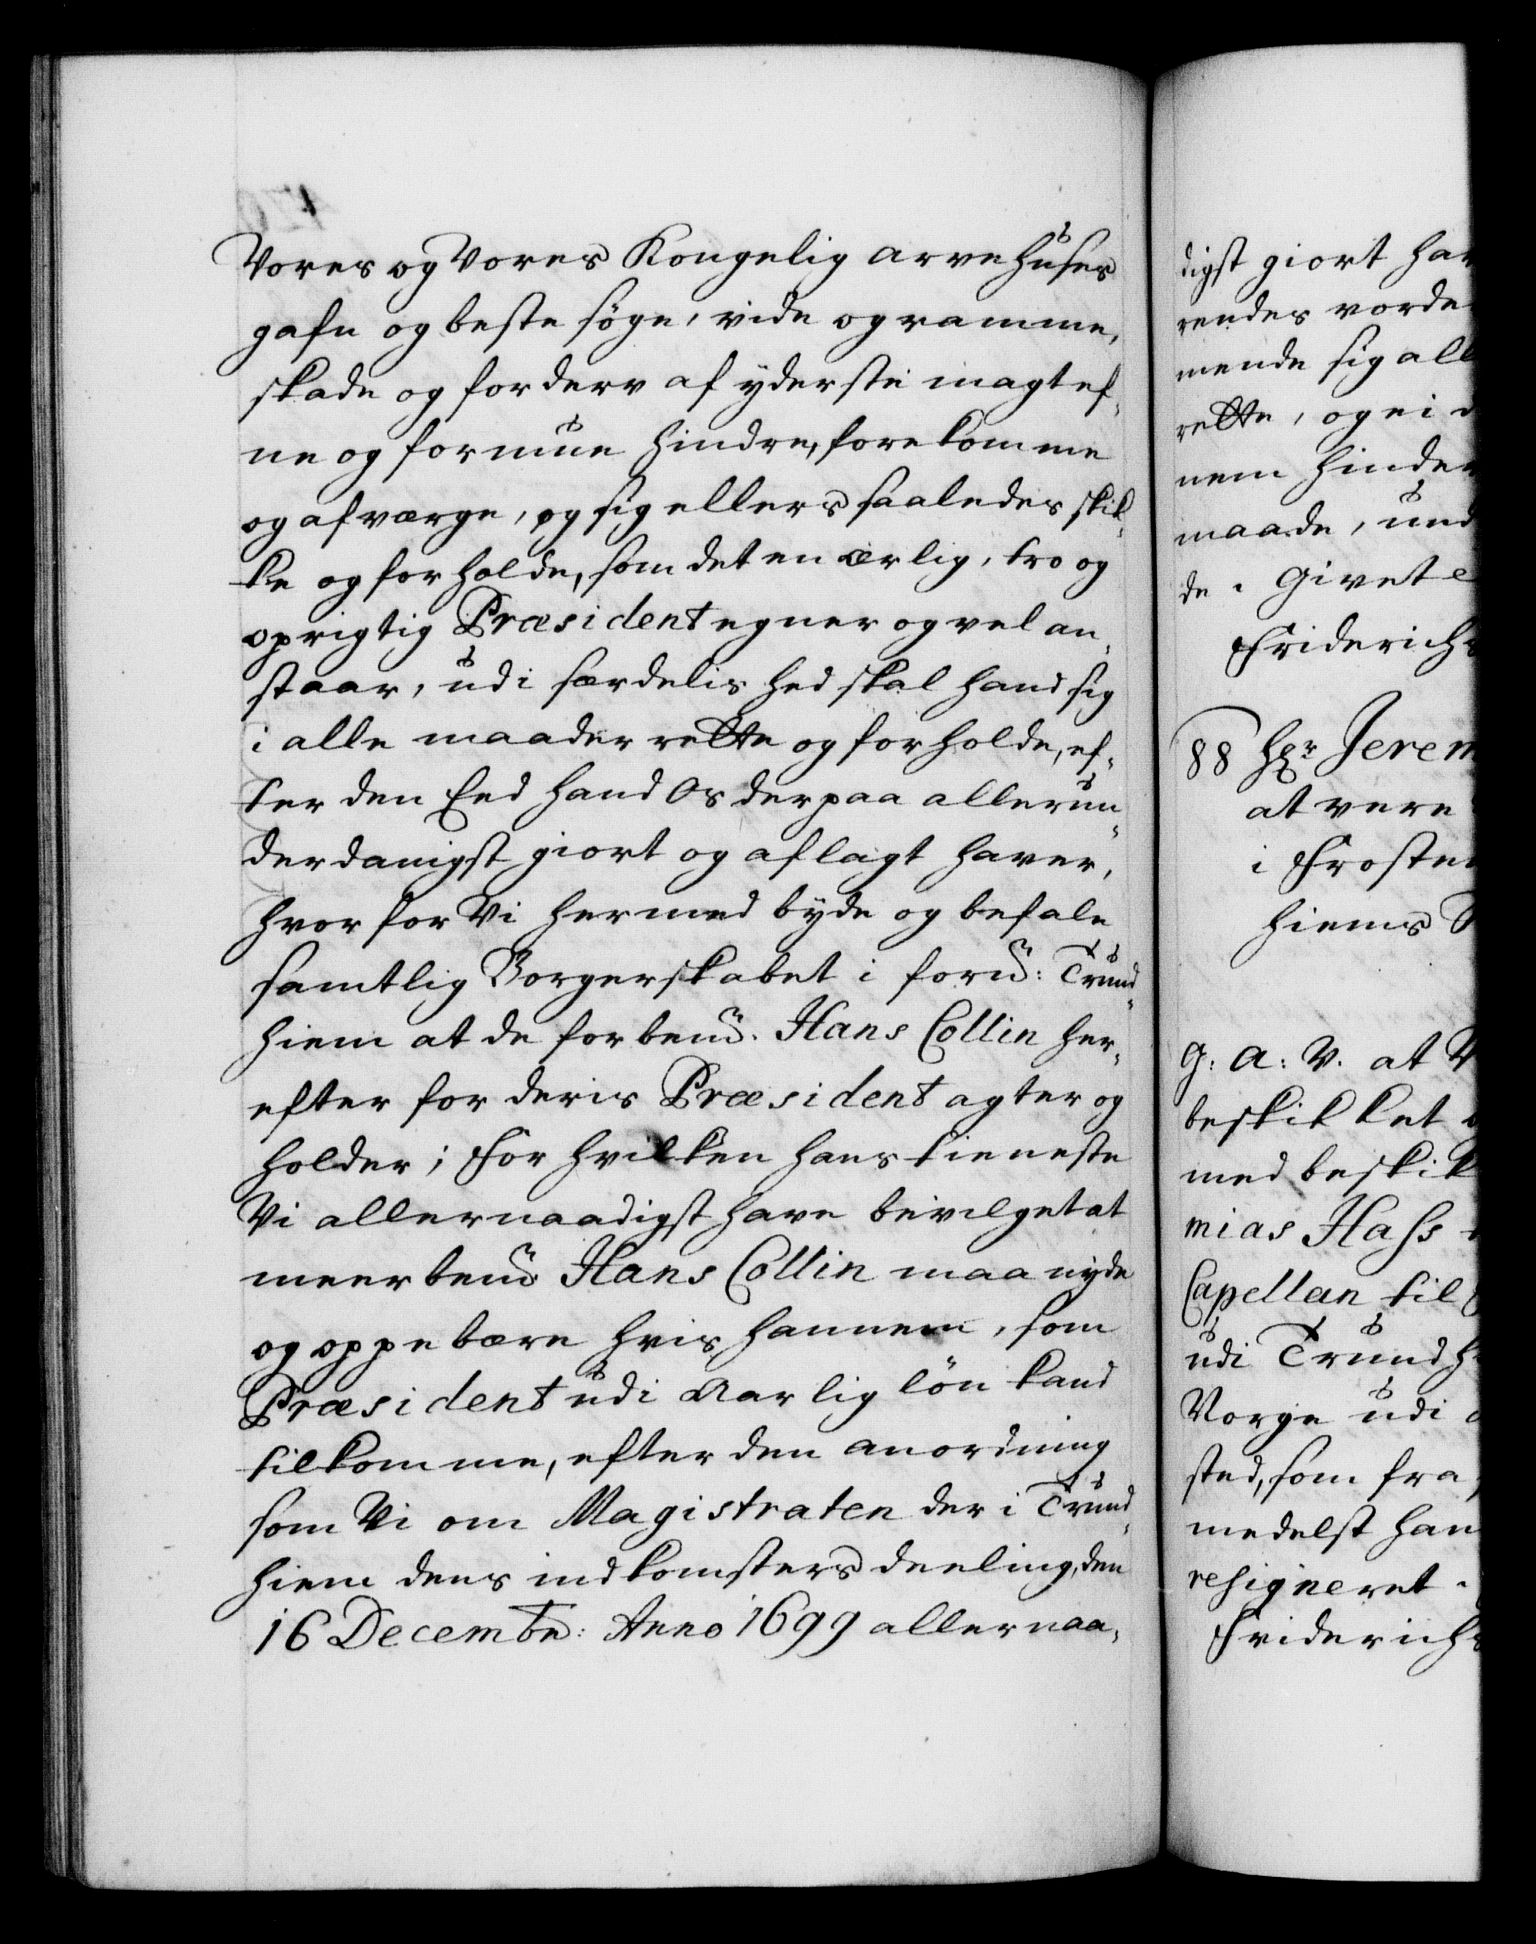 Vores og Vores Kongelig arvehuses
gafn og beste søge, vide og ramme,
skade og forderv af yderste magt ef-
ne og formue hindre, forekomme
og afværge, og sig ellers saaledes skik-
ke og forholde, som det en ærlig, tro og
oprigtig Præsident egner og vel an-
staar, udi særdelis hed skal hand sig
i alle maader rette og forholde, ef-
ter den Eed hand Os derpaa allerun-
derdanigst giort og aflagt haver,
hvorfor Vi hermed byde og befale
samtlig Borgerskabet i forn: Trund-
hiem at de forben. Hans Collin her-
efter for deris Præsident agter og
holder; For hvilken hans tieneste
Vi allernaadigst have bevilget at
meerben Hans Collin maa nyde
og oppebære hvis hannem, som
Præsident udi Aarlig løn kand
tilkomme, efter den anordning
som Vi om Magistraten der i Trund-
hiem dens indkomsters deeling, den
16 Decembr: Anno 1699 allernaa-
digst giort hav
rendes vorde
mende sig all
rette, og ei
nem hinder
maade, und
de. Givet
Friderichs
88 Hr Jerem
at vere
i Froste
hiems
G: A: V. at V
beskikket
med beskik
mias Hass
Capellan til
udi Trundh
Norge udi
sted, som fra
medelst han
resigneret.
Friderichs